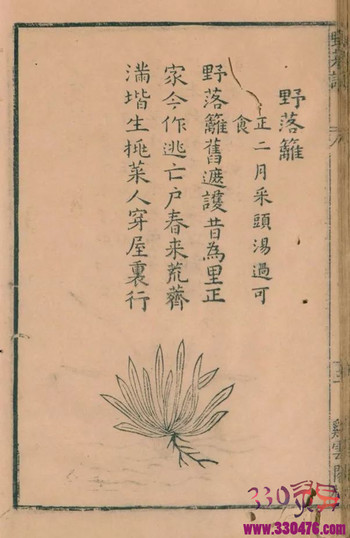 野落籬
正二月采頭湯過可
食
野落籬舊遮護昔為里正
家今作逃亡户春来荒薺
滿堦生挑菜人穿屋裏行
330
www.330476.com